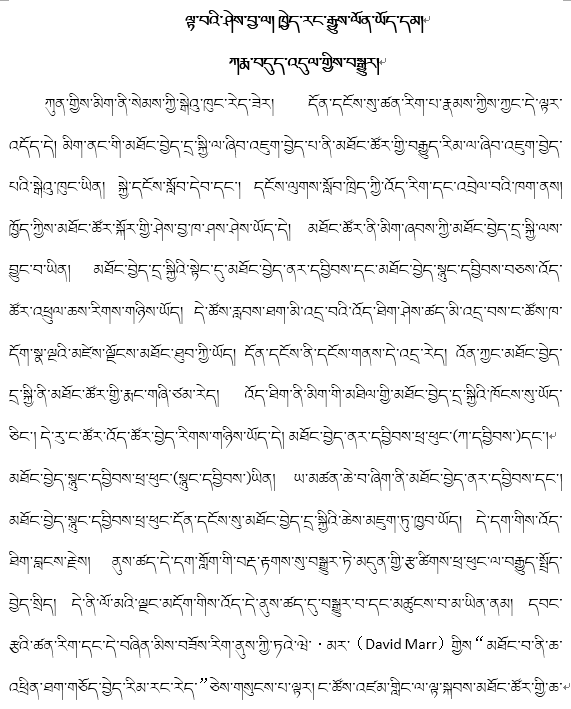 ལྟ་བའི་ཤེས་བྱ་ལ། ཁྱེད་རང་རྒྱུས་ལོན་ཡོད་དམ།
ཀརྨ་བདུད་འདུལ་གྱིས་བསྒྱུར།
ཀུན་གྱིས་མིག་ནི་སེམས་ཀྱི་སྒེའུ་ཁུང་རེད་ཟེར། དོན་དངོས་སུ་ཚན་རིག་པ་རྣམས་ཀྱིས་ཀྱང་དེ་ལྟར་
འདོད་དེ། མིག་ནང་གི་མཐོང་བྱེད་དྲ་སྐྱི་ལ་ཞིབ་འཇུག་བྱེད་པ་ནི་མཐོང་ཚོར་གྱི་བརྒྱུད་རིམ་ལ་ཞིབ་འཇུག་བྱེད་
པའི་སྒེའུ་ཁུང་ཡིན། སྐྱེ་དངོས་སློབ་དེབ་དང་། དངོས་ལུགས་སློབ་ཁྲིད་ཀྱི་འོད་རིག་དང་འབྲེལ་བའི་ཁག་ནས།
ཁྱོད་ཀྱིས་མཐོང་ཚོར་སྐོར་གྱི་ཤེས་བྱ་ཁ་ཤས་ཤེས་ཡོད་དེ། མཐོང་ཚོར་ནི་མིག་ཞབས་ཀྱི་མཐོང་བྱེད་དྲ་སྐྱི་ལས་
བྱུང་བ་ཡིན། མཐོང་བྱེད་དྲ་སྐྱིའི་སྟེང་དུ་མཐོང་བྱེད་ནར་དབྱིབས་དང་མཐོང་བྱེད་སྙུང་དབྱིབས་བཅས་འོད་
ཚོར་འཕྲུལ་ཆས་རིགས་གཉིས་ཡོད། དེ་ཚོས་རླབས་ཐག་མི་འདྲ་བའི་འོད་ཐིག་ཤེས་ཚད་མི་འདྲ་བས་ང་ཚོས་ཁ་
དོག་སྣ་ལྔའི་མཛེས་ལྗོངས་མཐོང་ཐུབ་ཀྱི་ཡོད། དོན་དངོས་ནི་དངོས་གནས་དེ་འདྲ་རེད། འོན་ཀྱང་མཐོང་བྱེད་
དྲ་སྐྱི་ནི་མཐོང་ཚོར་གྱི་རྨང་གཞི་ཙམ་རེད། འོད་ཐིག་ནི་མིག་གི་མཐིལ་གྱི་མཐོང་བྱེད་དྲ་སྐྱིའི་ཁོངས་སུ་ཡོད་
ཅིང་། དེ་རུ་ང་ཚོར་འོད་ཚོར་བྱེད་རིགས་གཉིས་ཡོད་དེ། མཐོང་བྱེད་ནར་དབྱིབས་ཕྲ་ཕུང་(ཀ་དབྱིབས་)དང་།
མཐོང་བྱེད་སྙུང་དབྱིབས་ཕྲ་ཕུང་(སྙུང་དབྱིབས་)ཡིན། ཡ་མཚན་ཆེ་བ་ཞིག་ནི་མཐོང་བྱེད་ནར་དབྱིབས་དང་།
མཐོང་བྱེད་སྙུང་དབྱིབས་ཕྲ་ཕུང་དོན་དངོས་སུ་མཐོང་བྱེད་དྲ་སྐྱིའི་ཆེས་མཇུག་ཏུ་ཁྱབ་ཡོད། དེ་དག་གིས་འོད་
ཐིག་བླངས་རྗེས། ནུས་ཚད་དེ་དག་གློག་གི་བརྡ་རྟགས་སུ་བསྒྱུར་ཏེ་མདུན་གྱི་རྩ་ཚིགས་ཕྲ་ཕུང་ལ་བརྒྱུད་སྤྲོད་
བྱེད་སྲིད། དེ་ནི་ལོ་མའི་ལྗང་མདོག་གིས་འོད་དེ་ནུས་ཚད་དུ་བསྒྱུར་བ་དང་མཚུངས་བ་མ་ཡིན་ནམ། དབང་
རྩའི་ཚན་རིག་དང་དེ་བཞིན་མིས་བཟོས་རིག་ནུས་ཀྱི་ཏའེ་ཝེ་·མར་（David Marr）གྱིས“མཐོང་བ་ནི་ཆ་
འཕྲིན་ཐག་གཅོད་བྱེད་རིམ་རང་རེད་”ཅེས་གསུངས་པ་ལྟར། ང་ཚོས་འཛམ་གླིང་ལ་ལྟ་སྐབས་མཐོང་ཚོར་གྱི་ཆ་